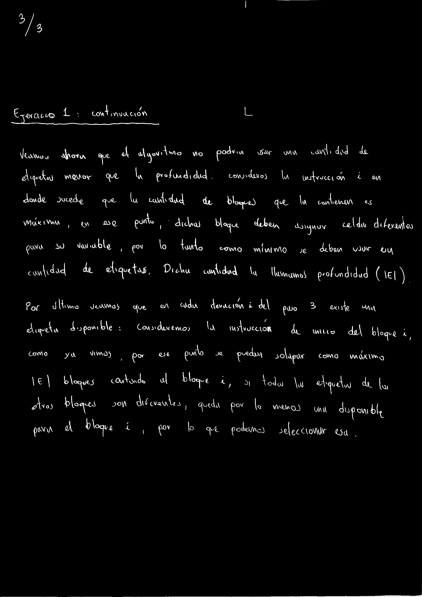 3/3
Ejercicio 1 : continuación
Veamos ahora que el algoritmo no podria usar una cantidad de
etiquetas menor que la profundidad. consideros la instrucción i en
donde sucede que la cantidad de bloques que la contienen es
máxima, en ese punto, dichos bloque deben asignar celdas diferentes
para su variable, por lo tanto como mínimo se deben usar esa
cantidad de etiquetas. Dicha cantidad la llamamos profundidad (|E|).
Por último veamos que en cada iteración i del paso 3 existe una
etiqueta disponible : Consideremos la instrucción de inicio del bloque i,
como ya vimos, por ese punto se pueden solapar como máximo
|E| bloques contando al bloque i, si todas las etiquetas de los
otros bloques son diferentes, queda por lo menos una disponible
para el bloque i, por lo que podemos seleccionar esa.